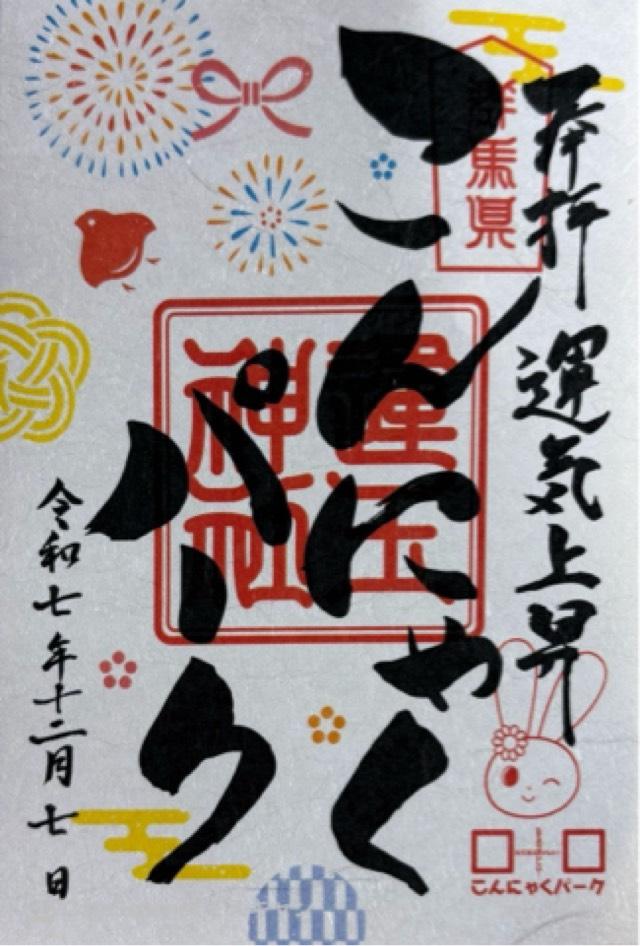 奉拝
運気上昇
群馬県
こんにゃく
パーク
運玉
神社
令和七年十二月七日
こんにゃくパーク